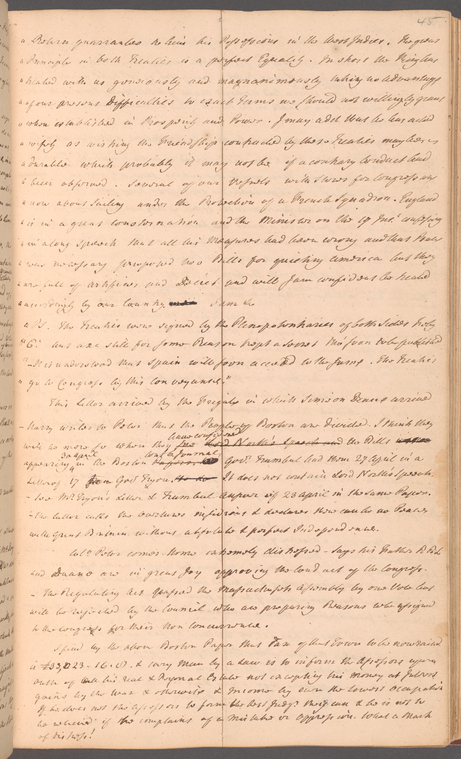 48
" Return guarantees to him his Possessions in the West Indies. The great
" Principle in both Treaties is a perfect Equality. In short the King has
" treated with us generously and magnanimously taking no advantage
" of our present Difficulties to exact Terms we should not willingly grant
" when established in Prosperity and Power. I may add that he has acted
" wisely as wishing the Friendship contracted by these Treaties may be
" durable which probably it may not be if a contrary Conduct had
" been observed. Several of our Vessels with Stores for Congress are
" now about sailing under the Protection of a French Squadron. England
" is in a great Consternation and the Minister on the 17 Inst. confessing
" in a long Speech that all his Measures had been wrong and that Peace
" was necessary proposed two Bills for quieting America but they
" are full of artifices and Deceit and will I am confident be treated
" accordingly by our Country I am &c
" P.S. The Treaties were signed by the Plenipotentiaries of both Sides Feby
" 6th but are still for some Reasons kept a Secret tho soon to be published
" It is understood that Spain will soon acceed to the same. The Treaties
" go to Congress by this Conveyance."
This Letter arrived by the Frigate in which Simeon Deane arrived
Harry writes to Peter that the People of Boston are divided. I think they
will be no more so when they have considered the Bills
appearing in the Boston Journal Govr. Trumbul had them 27 April in a
Letter of 17 from Govr Tryon It does not contain Lord North's Speech
- See Mr Tryon's Letter & Trumbul Answer of 23 April in the same Paper.
- The Latter calls the Overtures insidious & declares there can be no Peace
with Great Britain without absolute & perfect Independence.
Peter comes Home extremely distressed. Says his Father R R L
and Duane are in great Joy approving the Conduct of the Congress.
- The Regulating Act passed the Massachusets Assembly by one Vote but
will be rejected by the Council who are preparing Reasons to be offered
to the Congress for their non Concurrence.
I find by the above Boston Paper that Tax of that Town to be now raised
is £33,023-16-. & every Man by a Law is to inform the Assessors upon
Oath of all his real & Personal Estate not excepting his Money at Interest
gains by the War & otherwise & Income by even the lowest Occupation
If he does not the Assessors to form the best Judgt they can & he is not to
be relieved if he complains of a Mistake or Oppression. What a Mark
of Distress!